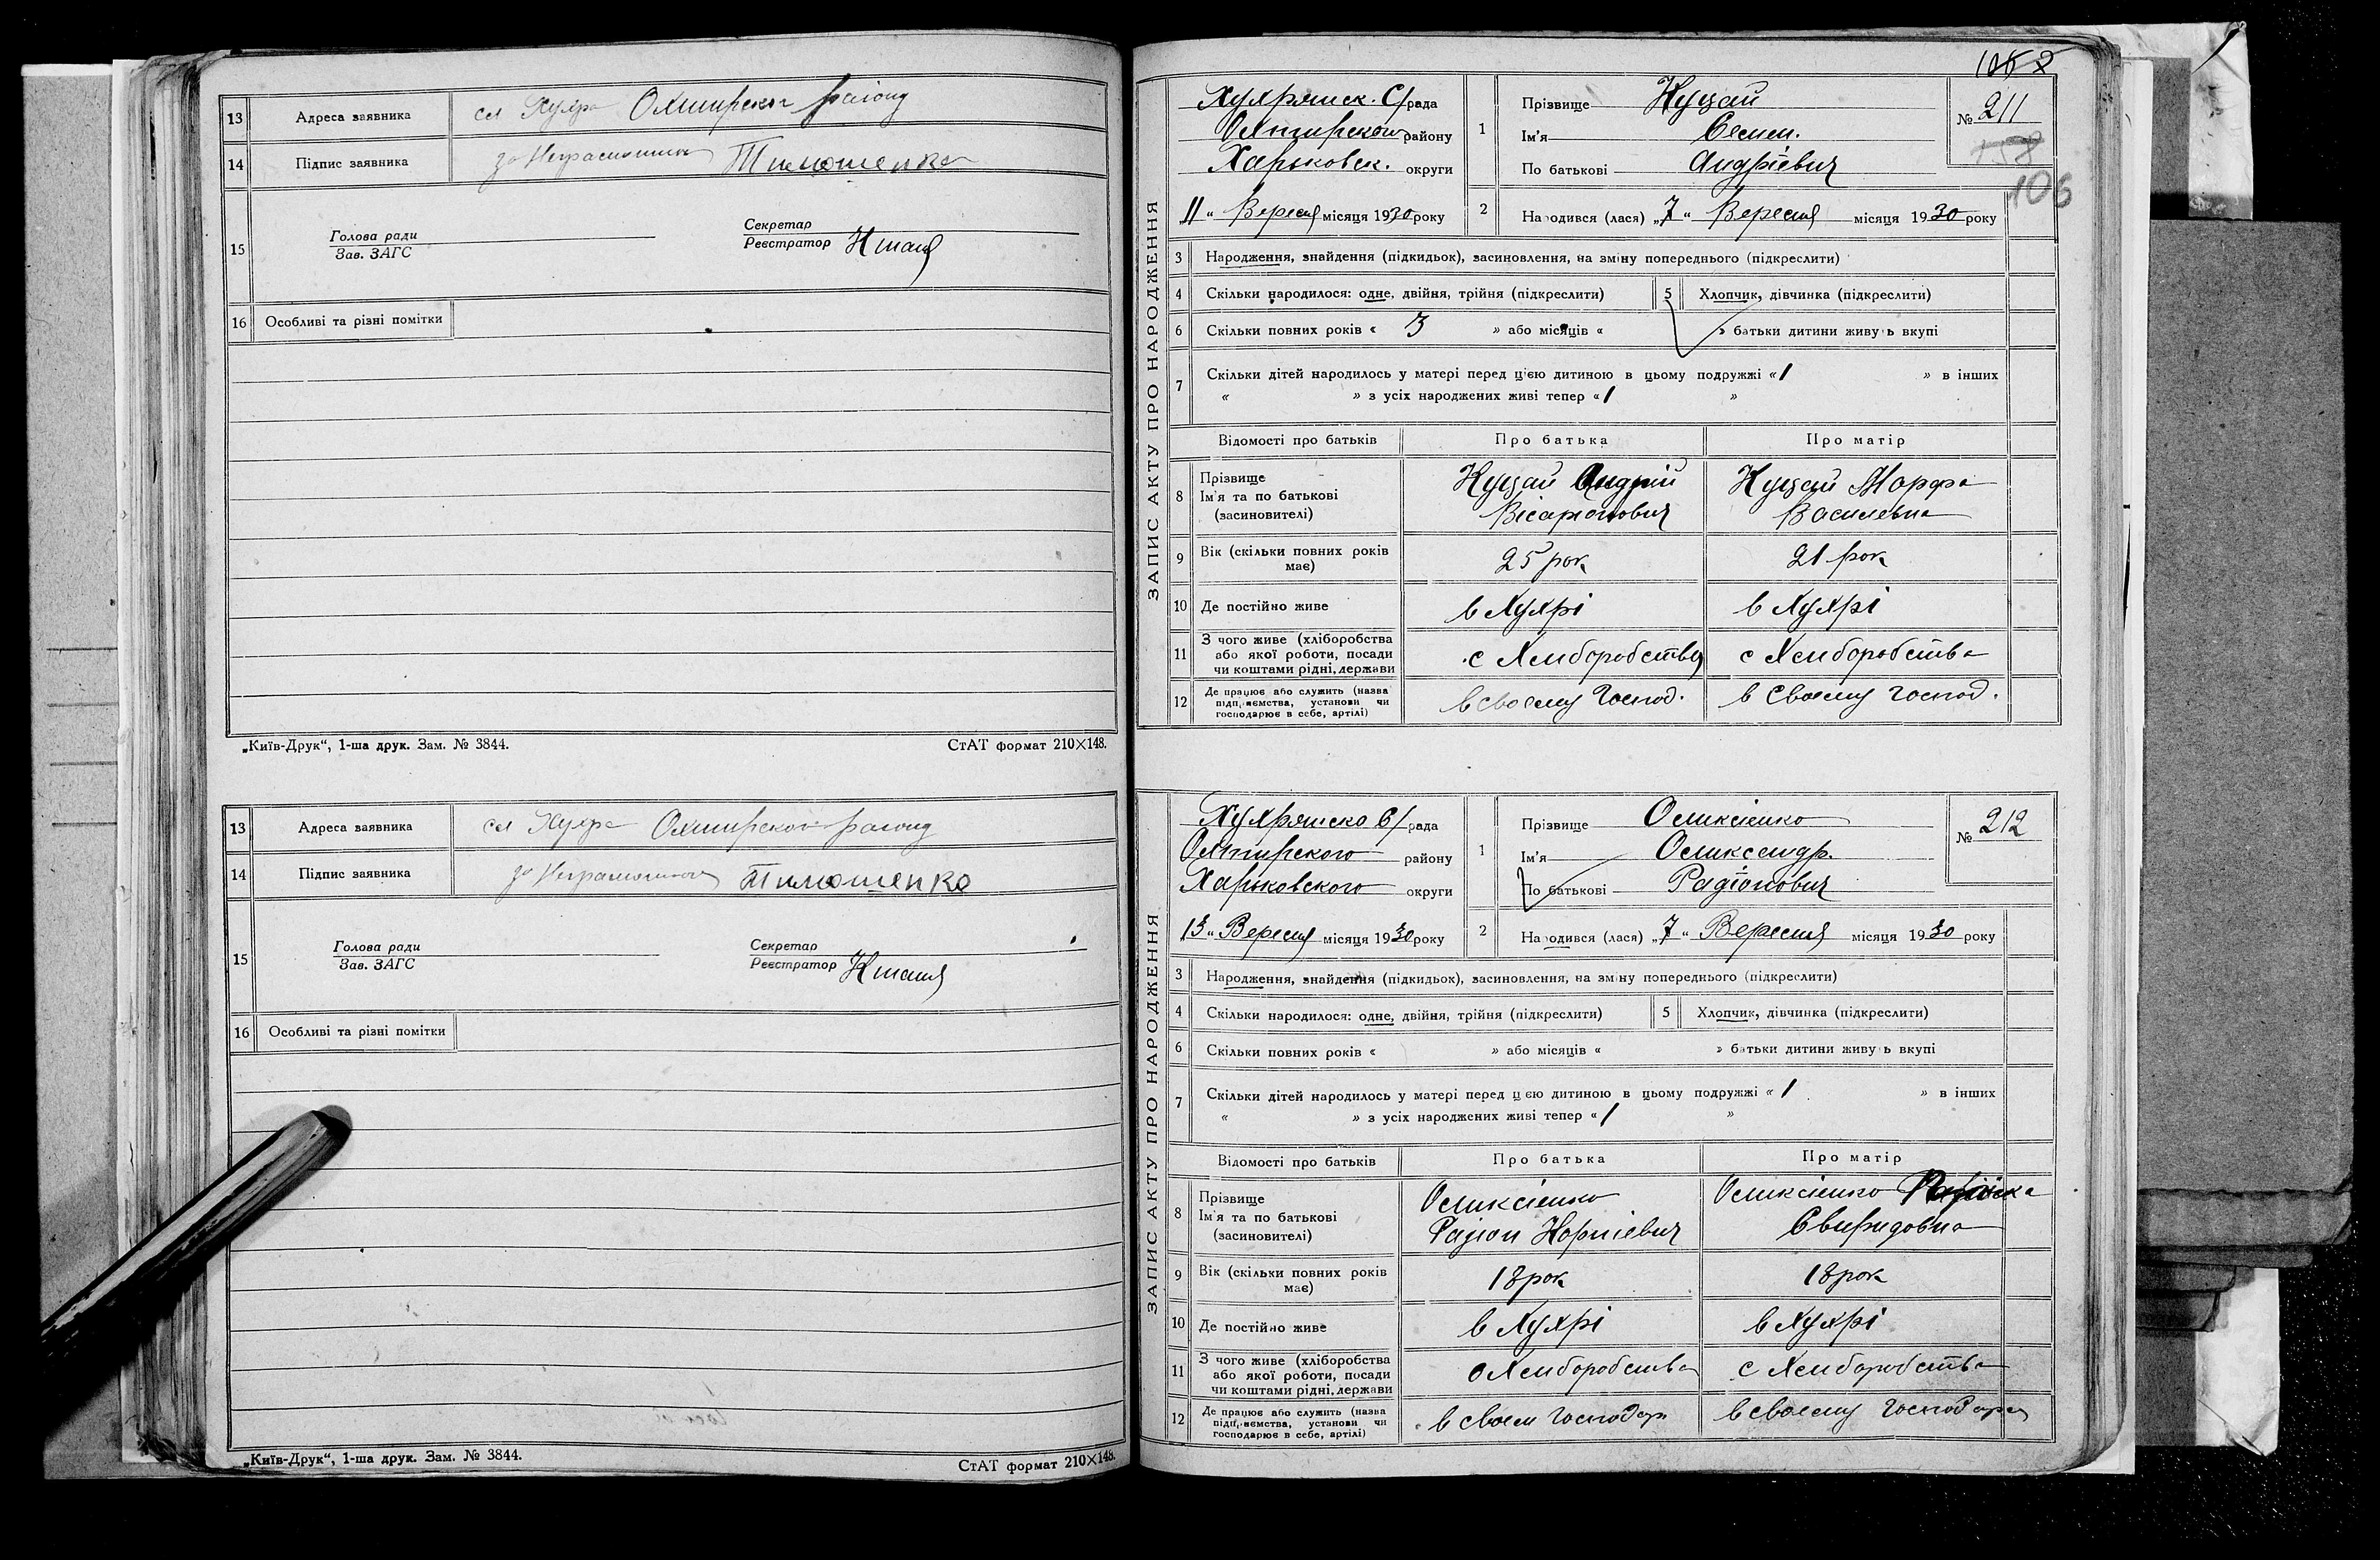 13 Адреса заявника сл Хухра Охтирског району
14 Підпис заявника за Неграмотного Тимошенко
15 Голова ради
Зав. ЗАГС
Секретар
Реєстратор
16 Особливі та різні помітки
„Київ-Друк“, 1-ша друк. Зам. № 3844. СтАТ формат 210×148.
13 Адреса заявника сл Хухра Охтирского району
14 Підпис заявника за Неграмотного Тимошенко
15 Голова ради
Зав. ЗАГС
Секретар
Реєстратор
16 Особливі та різні помітки
„Київ-Друк“, 1-ша друк. Зам. № 3844. СтАТ формат 210×148.
ЗАПИС АКТУ ПРО НАРОДЖЕННЯ
Хухрянск. С/рада
Охтирского району
Харьковск. округи
„11“ Вересня місяця 1930 року
1 Прізвище Куцай
Ім'я Семен.
По батькові Андрієвич
№ 211
158
106
2 Народився (лася) „7“ Вересня місяця 1930 року
3 Народження, знайдення (підкидьок), засиновлення, на зміну попереднього (підкреслити)
4 Скільки народилося: одне, двійня, трійня (підкреслити) 5 Хлопчик, дівчинка (підкреслити)
6 Скільки повних років « 3 » або місяців « » батьки дитини живуть вкупі
7 Скільки дітей народилось у матері перед цією дитиною в цьому подружжі «1 » в інших
« » з усіх народжених живі тепер «1 »
Відомості про батьків Про батька Про матір
8 Прізвище
Ім'я та по батькові
(засиновителі)
Куцай Андрій
Вісаріонович
Куцай Марфа
Василевна
9 Вік (скільки повних років має) 25 рок 21 рок
10 Де постійно живе в Хухрі в Хухрі
11 З чого живе (хліборобства
або якої роботи, посади
чи коштами рідні, держави
с Хлиборобства с Хлиборобства
12 Де працює або служить (назва
підприємства, установи чи
господарює в себе, артілі)
в своему Господ. в своему господ.
ЗАПИС АКТУ ПРО НАРОДЖЕННЯ
Хухрянско С/рада
Охтирского району
Харьковского округи
„13“ Вересня місяця 1930 року
1 Прізвище Оликсієнко
Ім'я Оликсандр.
По батькові Радіонович
№ 212
2 Народився (лася) „7“ Вересня місяця 1930 року
3 Народження, знайдення (підкидьок), засиновлення, на зміну попереднього (підкреслити)
4 Скільки народилося: одне, двійня, трійня (підкреслити) 5 Хлопчик, дівчинка (підкреслити)
6 Скільки повних років « » або місяців « » батьки дитини живуть вкупі
7 Скільки дітей народилось у матері перед цією дитиною в цьому подружжі «1 » в інших
« » з усіх народжених живі тепер «1 »
Відомості про батьків Про батька Про матір
8 Прізвище
Ім'я та по батькові
(засиновителі)
Оликсієнко
Радіон Корнієвич
Оликсієнко
Свиридовна
9 Вік (скільки повних років має) 18 рок 18 рок
10 Де постійно живе в Хухрі в Хухрі
11 З чого живе (хліборобства
або якої роботи, посади
чи коштами рідні, держави
с Хлиборобства с Хлиборобства
12 Де працює або служить (назва
підприємства, установи чи
господарює в себе, артілі)
в своем господар в своему господару